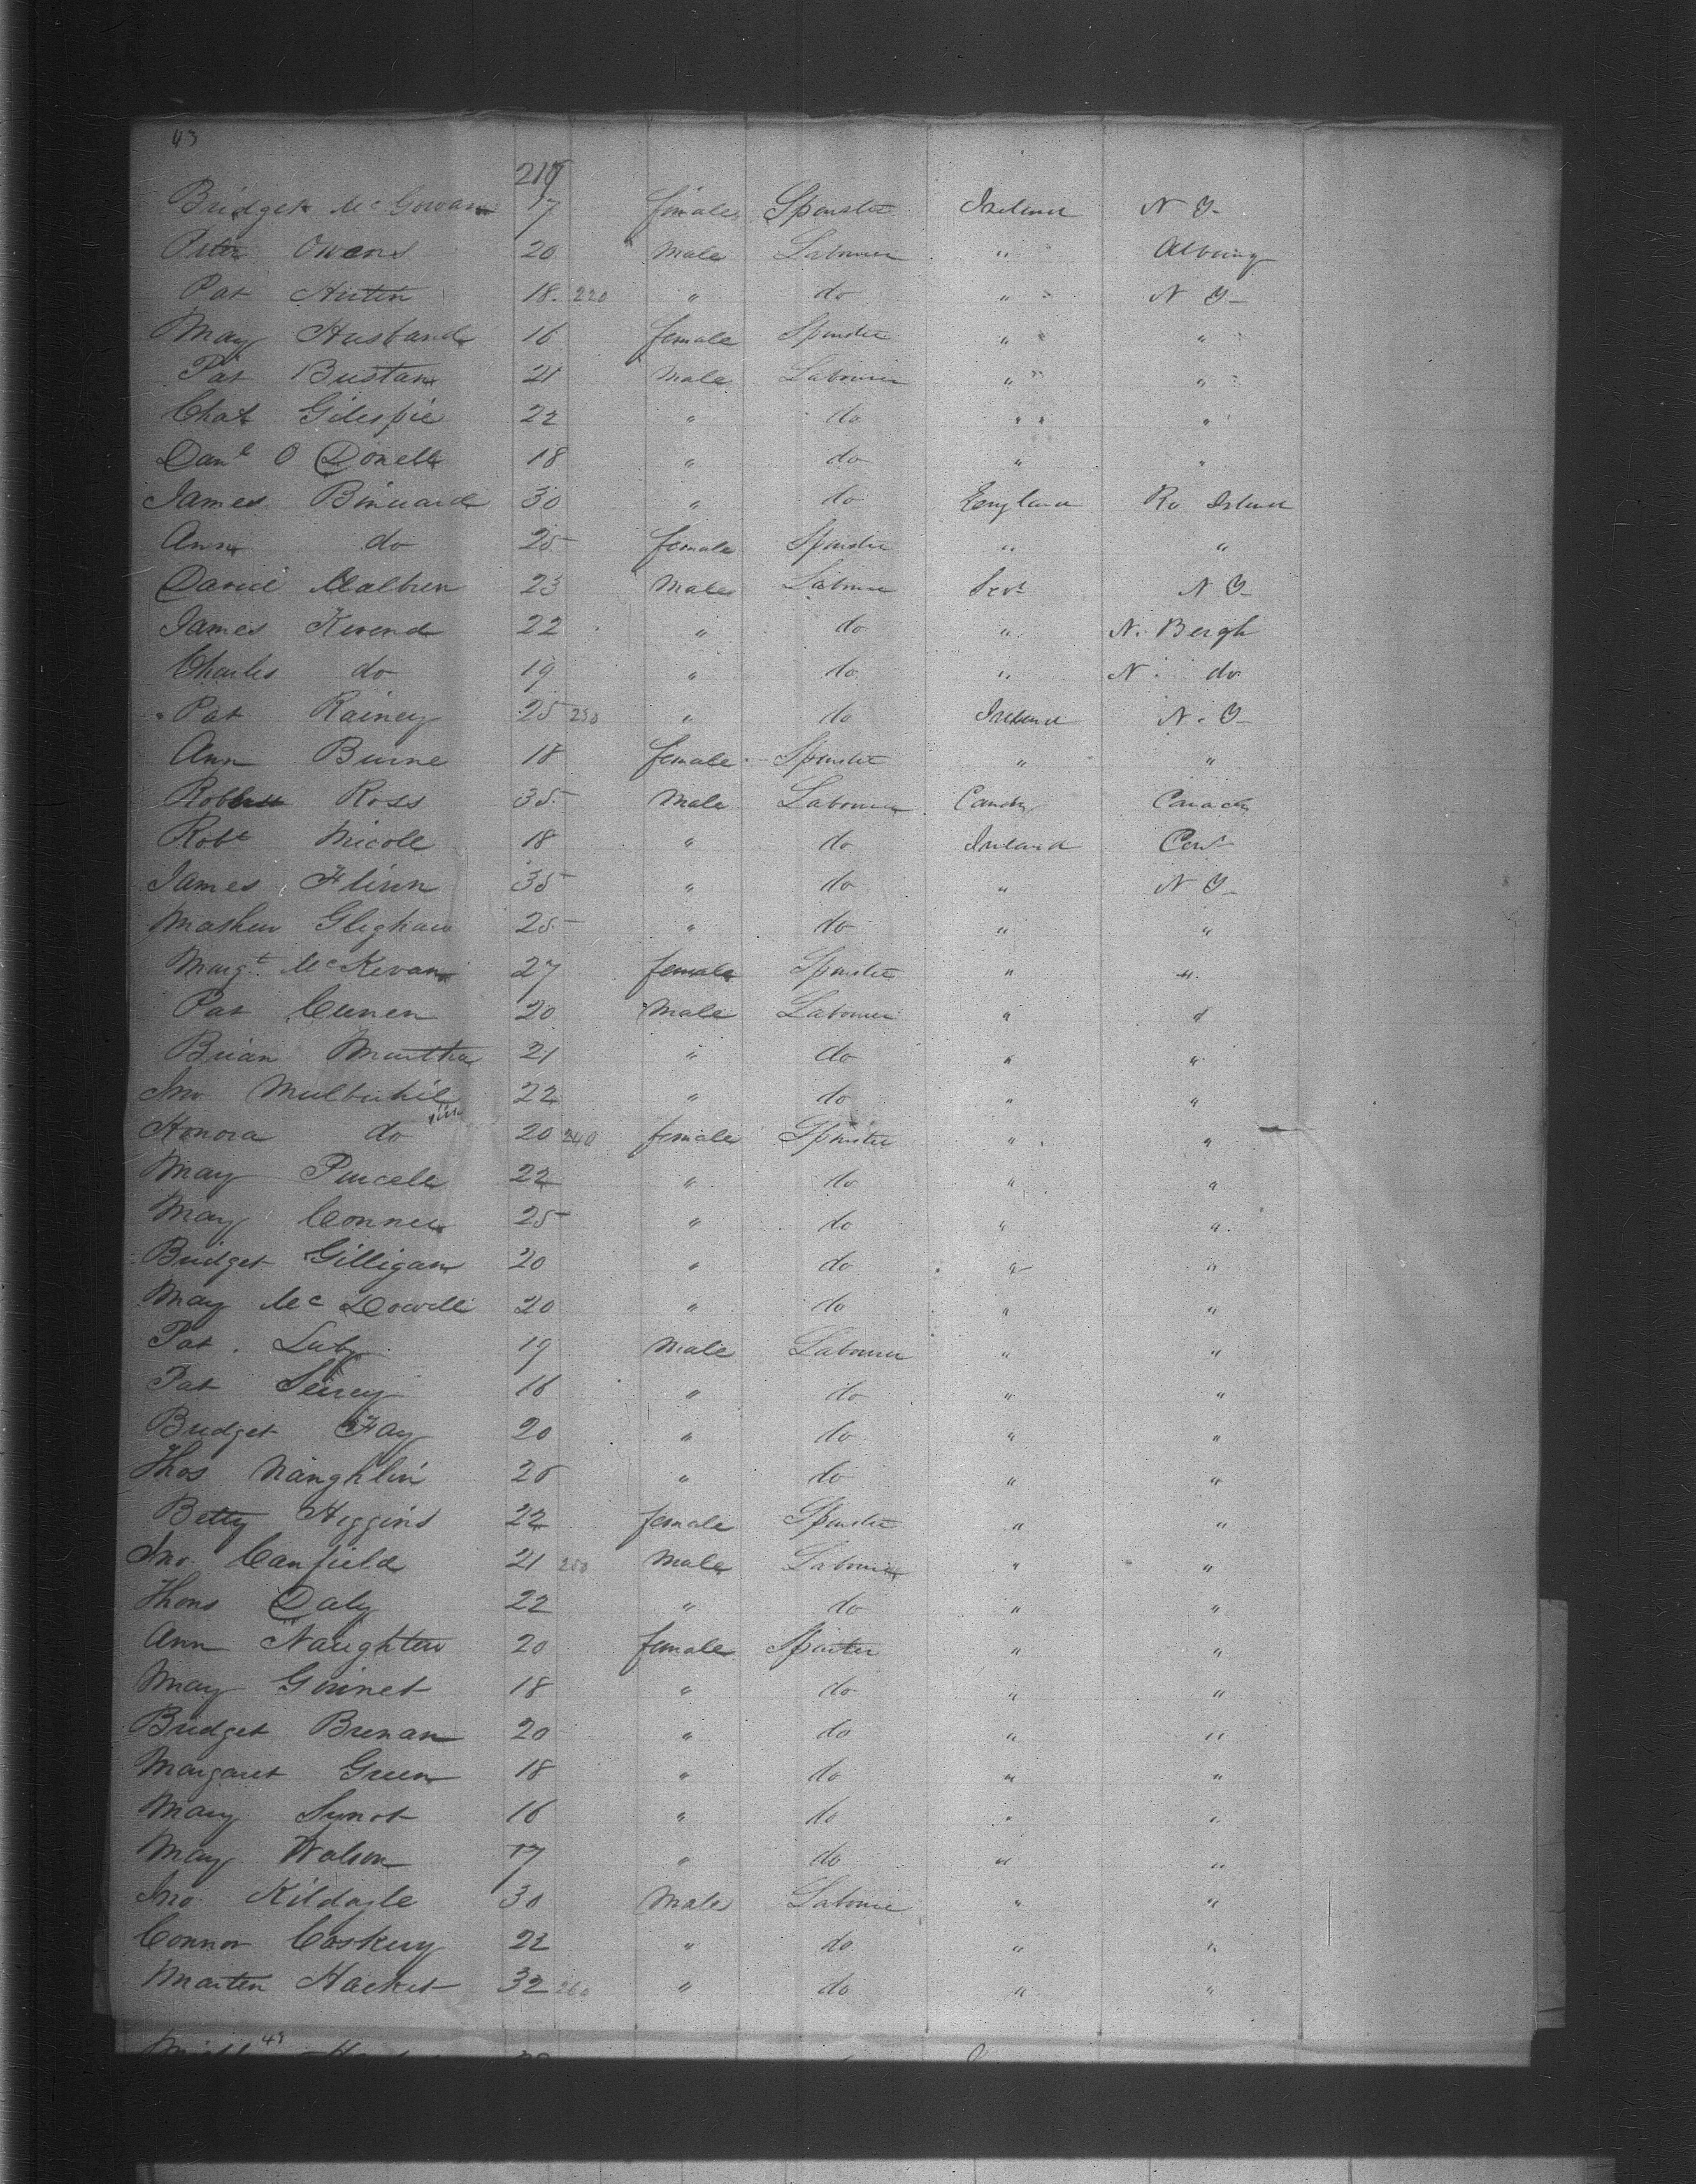 43
217
Bridget McGowan 17 female Spinster Ireland N Y
Peter Owens 20 Male Labourer " Albany
Pat Autin 18. 220 " do " N Y
May Husband 16 female Spinster " "
Pat Bustan 21 Male Labourer " "
Chas Gilespie 22 " do " "
Danl O Donell 18 " do " "
James Binuard 30 " do England Ro Island
Ann do 25 female Spinster " "
David 23 Male Labourer Scot N Y
James 22 " do " N. Bergh
Charles do 19 " do " N. do
Pat Rainey 25 230 " do Ireland N. Y
Ann Burne 18 female Spinster " "
Robert Ross 35 Male Labourer Canada
Robt Nicoll 18 " do Ireland
James Flinn 35 " do " N Y
Mathew 25 " do " "
Margt McKevan 27 female Spinster " "
Pat Cunen 20 Male Labourer " "
Brian Murtha 21 " do " "
Jno Mulbuhil 22 " do " "
Honora do 20 240 female Spinster " "
May Purcell 22 " do " "
May Conner 25 " do " "
Bridget Gilligan 20 " do " "
May McDowell 20 " do " "
Pat. Luby 19 Male Labourer " "
Pat 16 " do " "
Bridget Fay 20 " do " "
Thos Naughlin 26 " do " "
Betty Higgins 22 female Spinster " "
Jno. Canfield 21 250 Male Labourer " "
Thos Daly 22 " do " "
Ann Naughten 20 female Spinster " "
May Ginnet 18 " do " "
Bridget Brenan 20 " do " "
Margaret Green 18 " do " "
Mary Synot 16 " do " "
May Walson 17 " do " "
Jno. Kildagle 30 Male Labourer " "
Connor Coskery 22 " do " "
Marten Hacket 32 260 " do " "